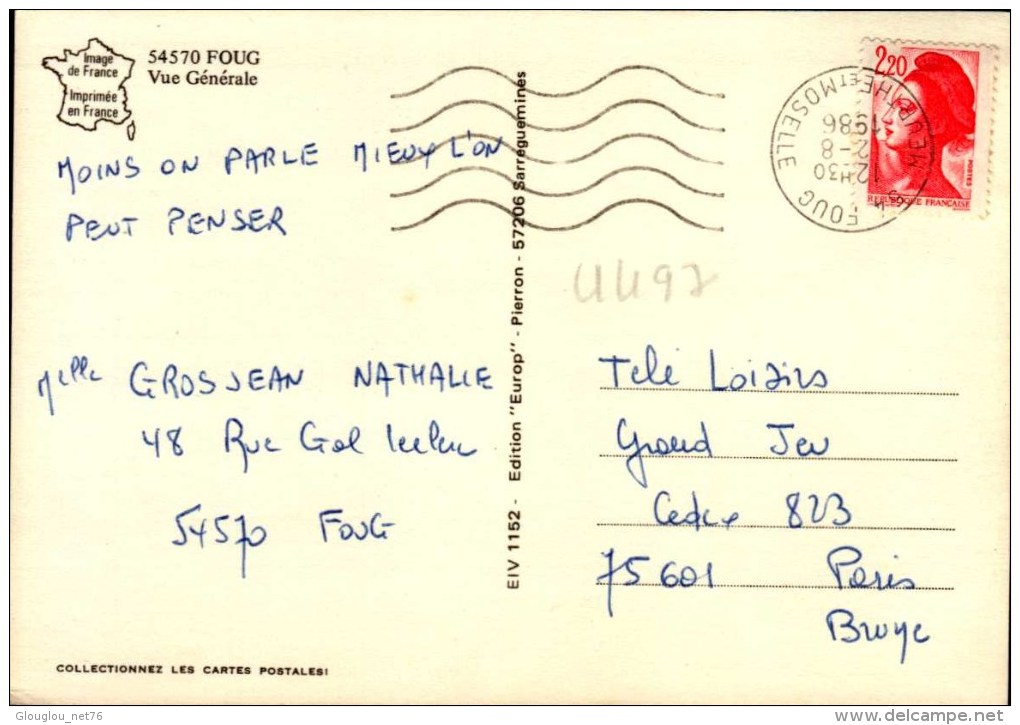 Image
de France
Imprimée
en France
54570 FOUG
Vue Générale
MOINS ON PARLE MIEUX L'ON
PEUT PENSER
Melle GROSJEAN NATHALIE
48 Rue Gal Leclerc
54570 FOUG
COLLECTIONNEZ LES CARTES POSTALES!
EIV 1152 - Edition "Europ" - Pierron - 57206 Sarreguemines
2,20
POSTES
REPUBLIQUE FRANÇAISE
FOUG
MEURTHE ET MOSELLE
12H30
12-8
1986
4497
Télé Loisirs
Grand Jeu
Cedex 823
75601 Paris
Brune
Glouglou_net76
delcampe.net